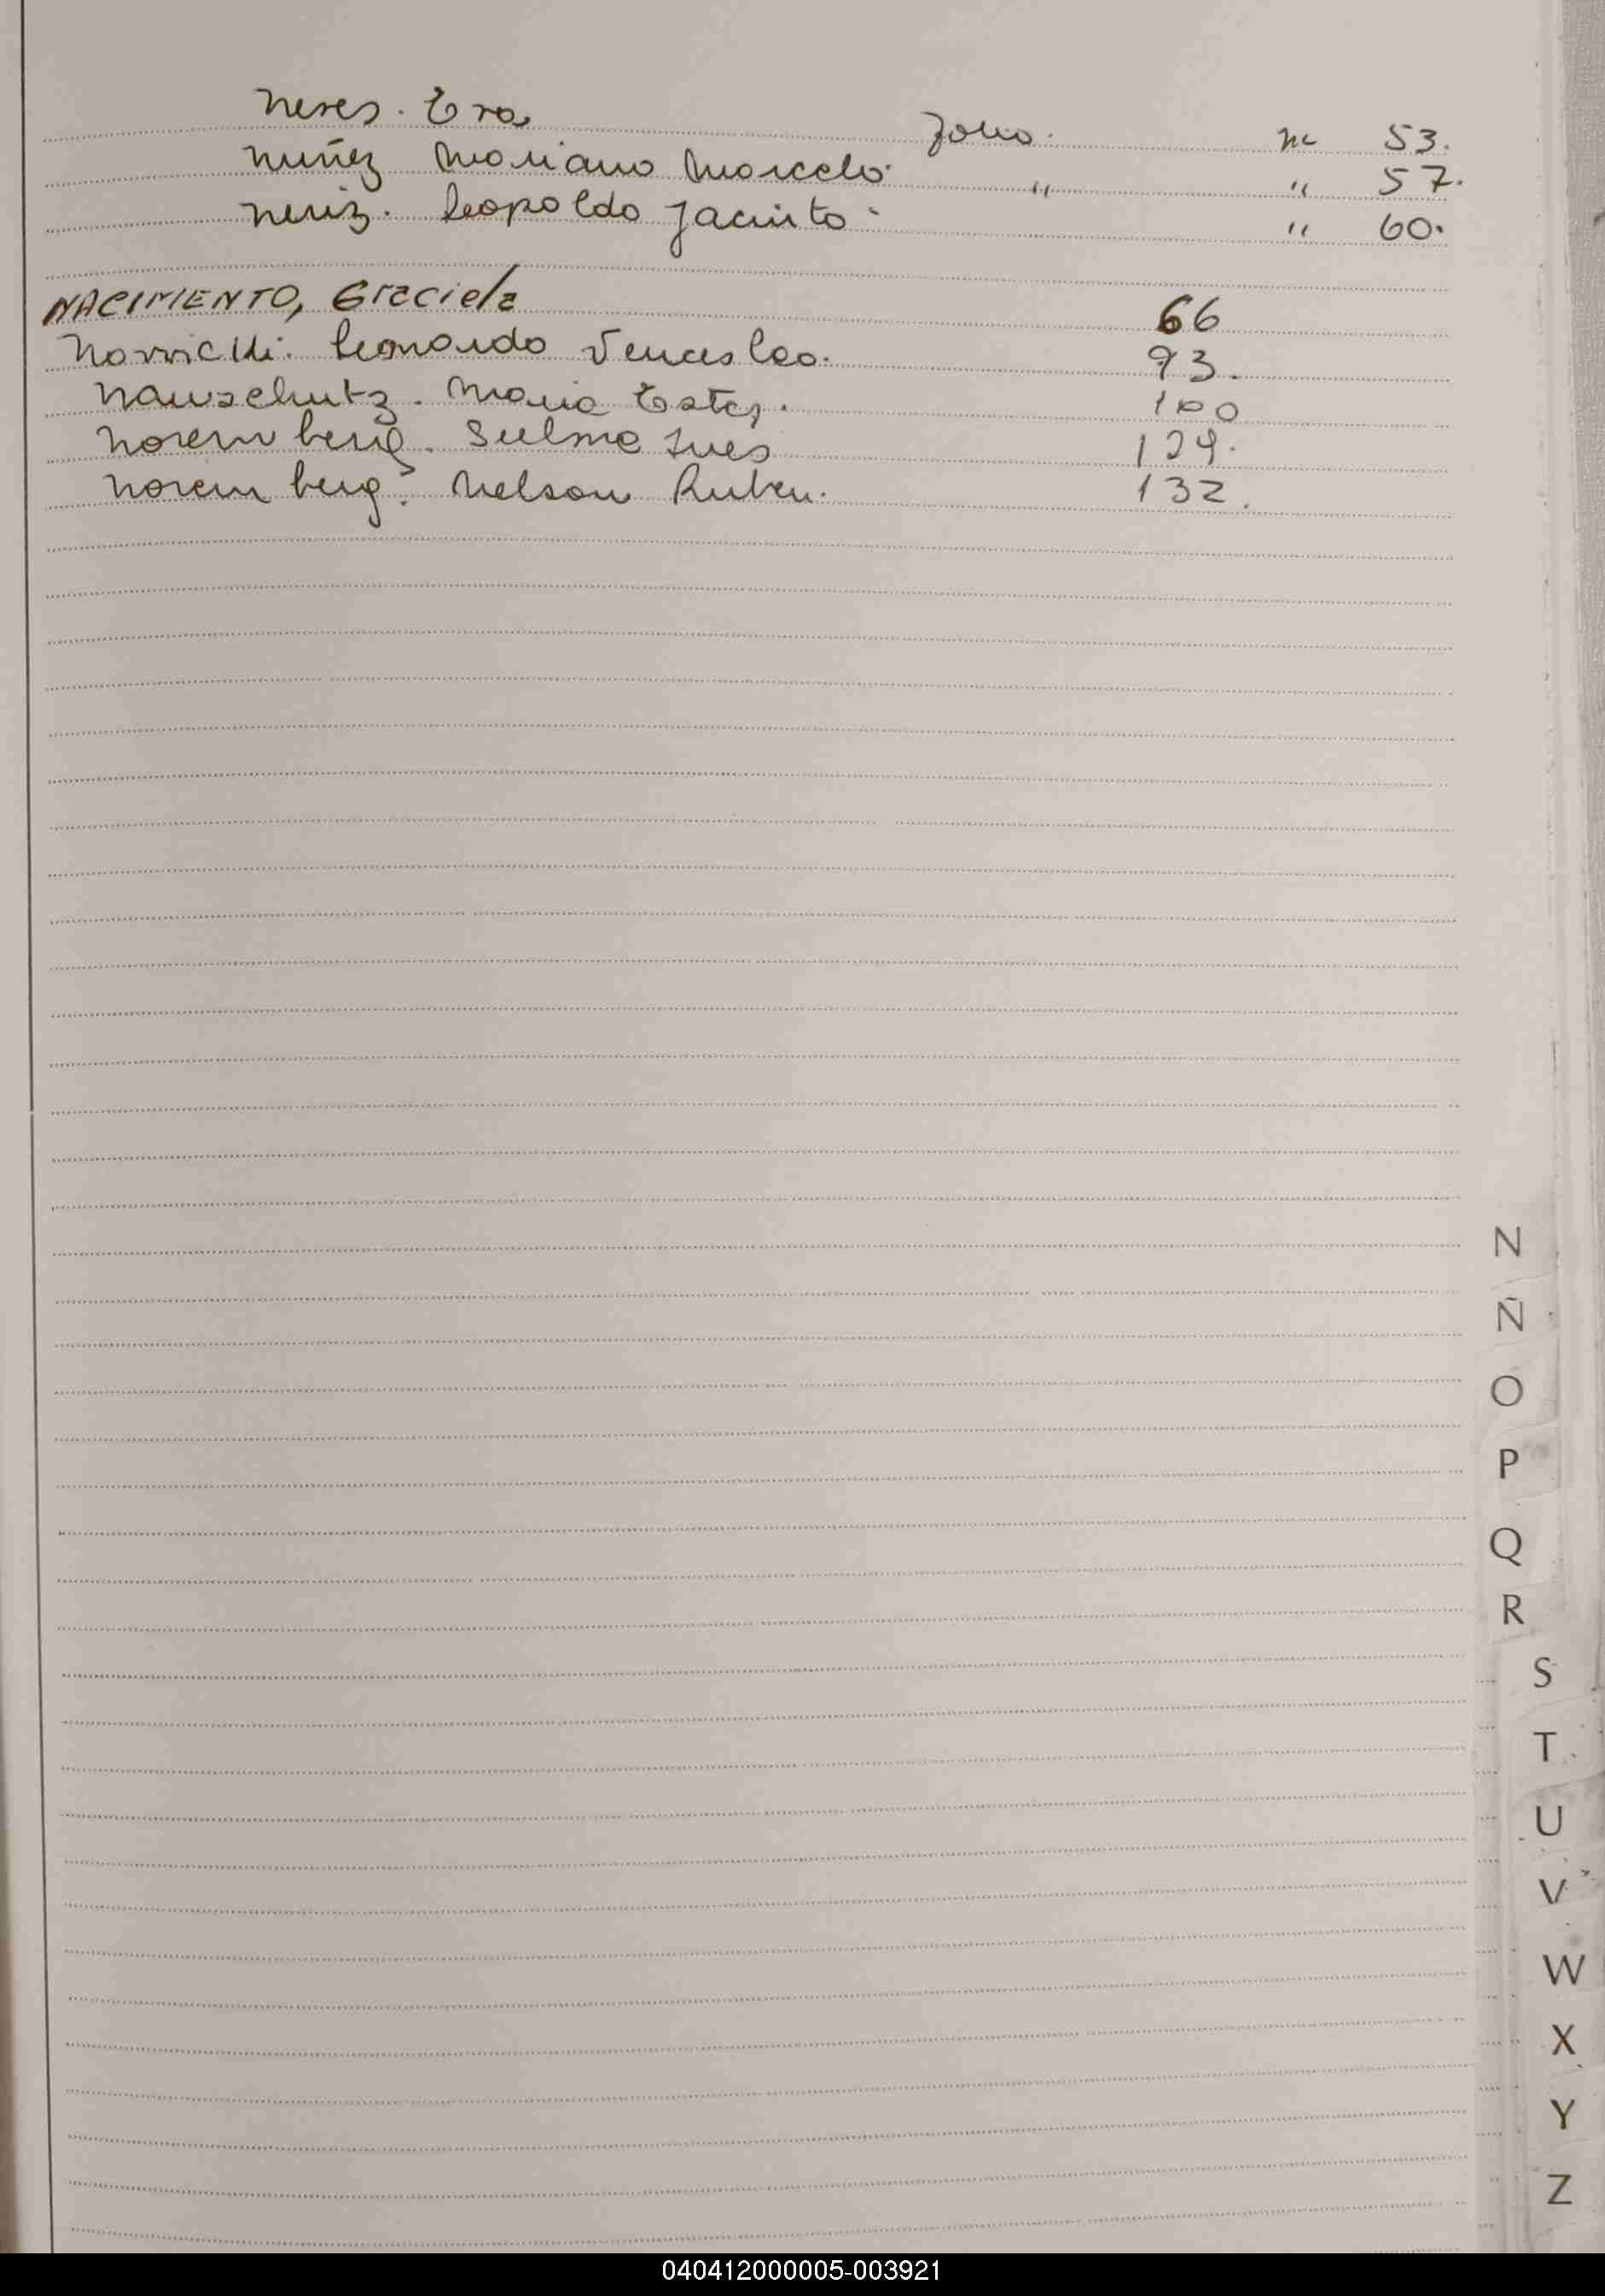 Neres. Eva Folio. Nº 53.
Nuñez Mariano Marcelo. " " 57.
Neriz. Leopoldo Jacinto. " 60.
NACIMIENTO, Graciela 66
Leonardo Venceslao. 93.
Nauschutz. Maria Ester. 100
Noremberg. Sulma Ines 129.
Noremberg. Nelson Ruben. 132.
N
Ñ
O
P
Q
R
S
T
U
V
W
X
Y
Z
040412000005-003921